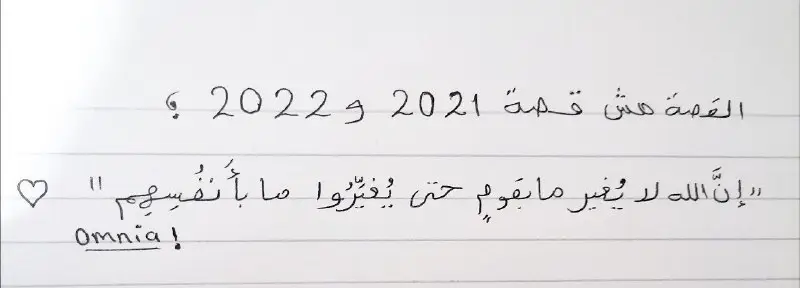 القصة مش قصة 2021 و2022 ؟
"إنَّ الله لا يُغير ما بقومٍ حتى يُغيِّرُوا ما بأَنفُسِهِم" ♡
Omnia!